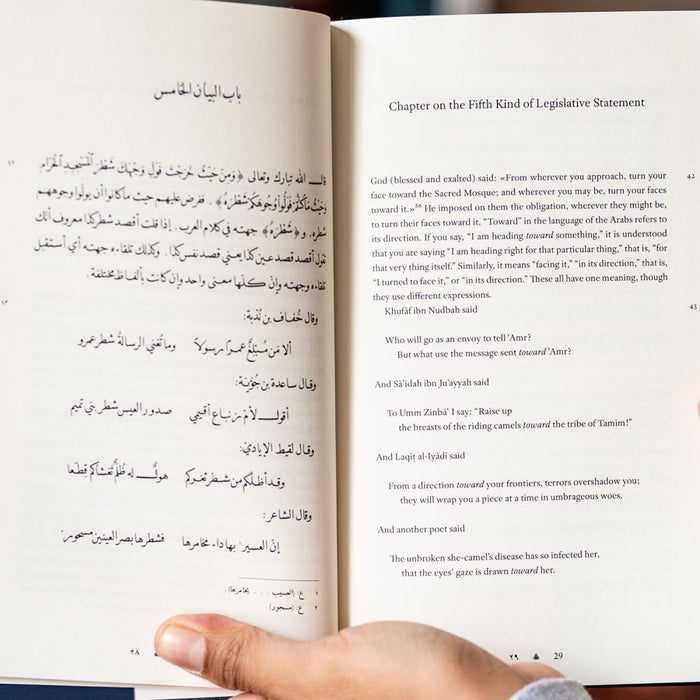 باب البيان الخامس
٤٢
قال الله تبارك وتعالى ﴿وَمِنْ حَيْثُ خَرَجْتَ فَوَلِّ وَجْهَكَ شَطْرَ ٱلْمَسْجِدِ ٱلْحَرَامِ
وَحَيْثُ مَا كُنتُمْ فَوَلُّوا۟ وُجُوهَكُمْ شَطْرَهُ﴾. ففرض عليهم حيث ما كانوا أن يولوا وجوههم
شطره. و﴿شَطْرَهُ﴾ جهته في كلام العرب. إذا قلت أقصد شطر كذا معروف أنك
تقول أقصد قصد عين كذا يعني قصد نفس كذا. وكذلك تلقاءه جهته أي أستقبل
تلقاءه وجهته وإنّ كلها معنى واحد وإن كانت بألفاظ مختلفة.
٤٣
وقال خُفاف بن نُدْبة:
ألا مَن مُبلِغٌ عمرًا رسولاً وما تُغني الرسالةُ شطر عمرو
وقال ساعدة بن جُؤَيّة:
أقول لأم زنباع أقيمي صدور العيس شطر بني تميم
وقال لقيط الإياديّ:
وقد أظلكم من شطر ثغركم هولٌ له ظُلَمٌ تغشاكم قِطَعا
وقال الشاعر:
إنّ العسير بها داء مخامرها فشطرها بصر العينين مسحور
١ ع: (العسيب . . . يخامرها).
٢ ع: (مسجور).
٢٨
Chapter on the Fifth Kind of Legislative Statement
God (blessed and exalted) said: «From wherever you approach, turn your 42
face toward the Sacred Mosque; and wherever you may be, turn your faces
toward it.»⁵⁶ He imposed on them the obligation, wherever they might be,
to turn their faces toward it. "Toward" in the language of the Arabs refers to
its direction. If you say, "I am heading toward something," it is understood
that you are saying "I am heading right for that particular thing," that is, "for
that very thing itself." Similarly, it means "facing it," "in its direction," that is,
"I turned to face it," or "in its direction." These all have one meaning, though
they use different expressions.
Khufāf ibn Nudbah said 43
Who will go as an envoy to tell ʿAmr?
But what use the message sent toward ʿAmr?
And Sāʿidah ibn Juʾayyah said
To Umm Zinbāʿ I say: "Raise up
the breasts of the riding camels toward the tribe of Tamīm!"
And Laqīṭ al-Iyādī said
From a direction toward your frontiers, terrors overshadow you;
they will wrap you a piece at a time in umbrageous woes.
And another poet said
The unbroken she-camel's disease has so infected her,
that the eyes' gaze is drawn toward her.
٢٩ 29